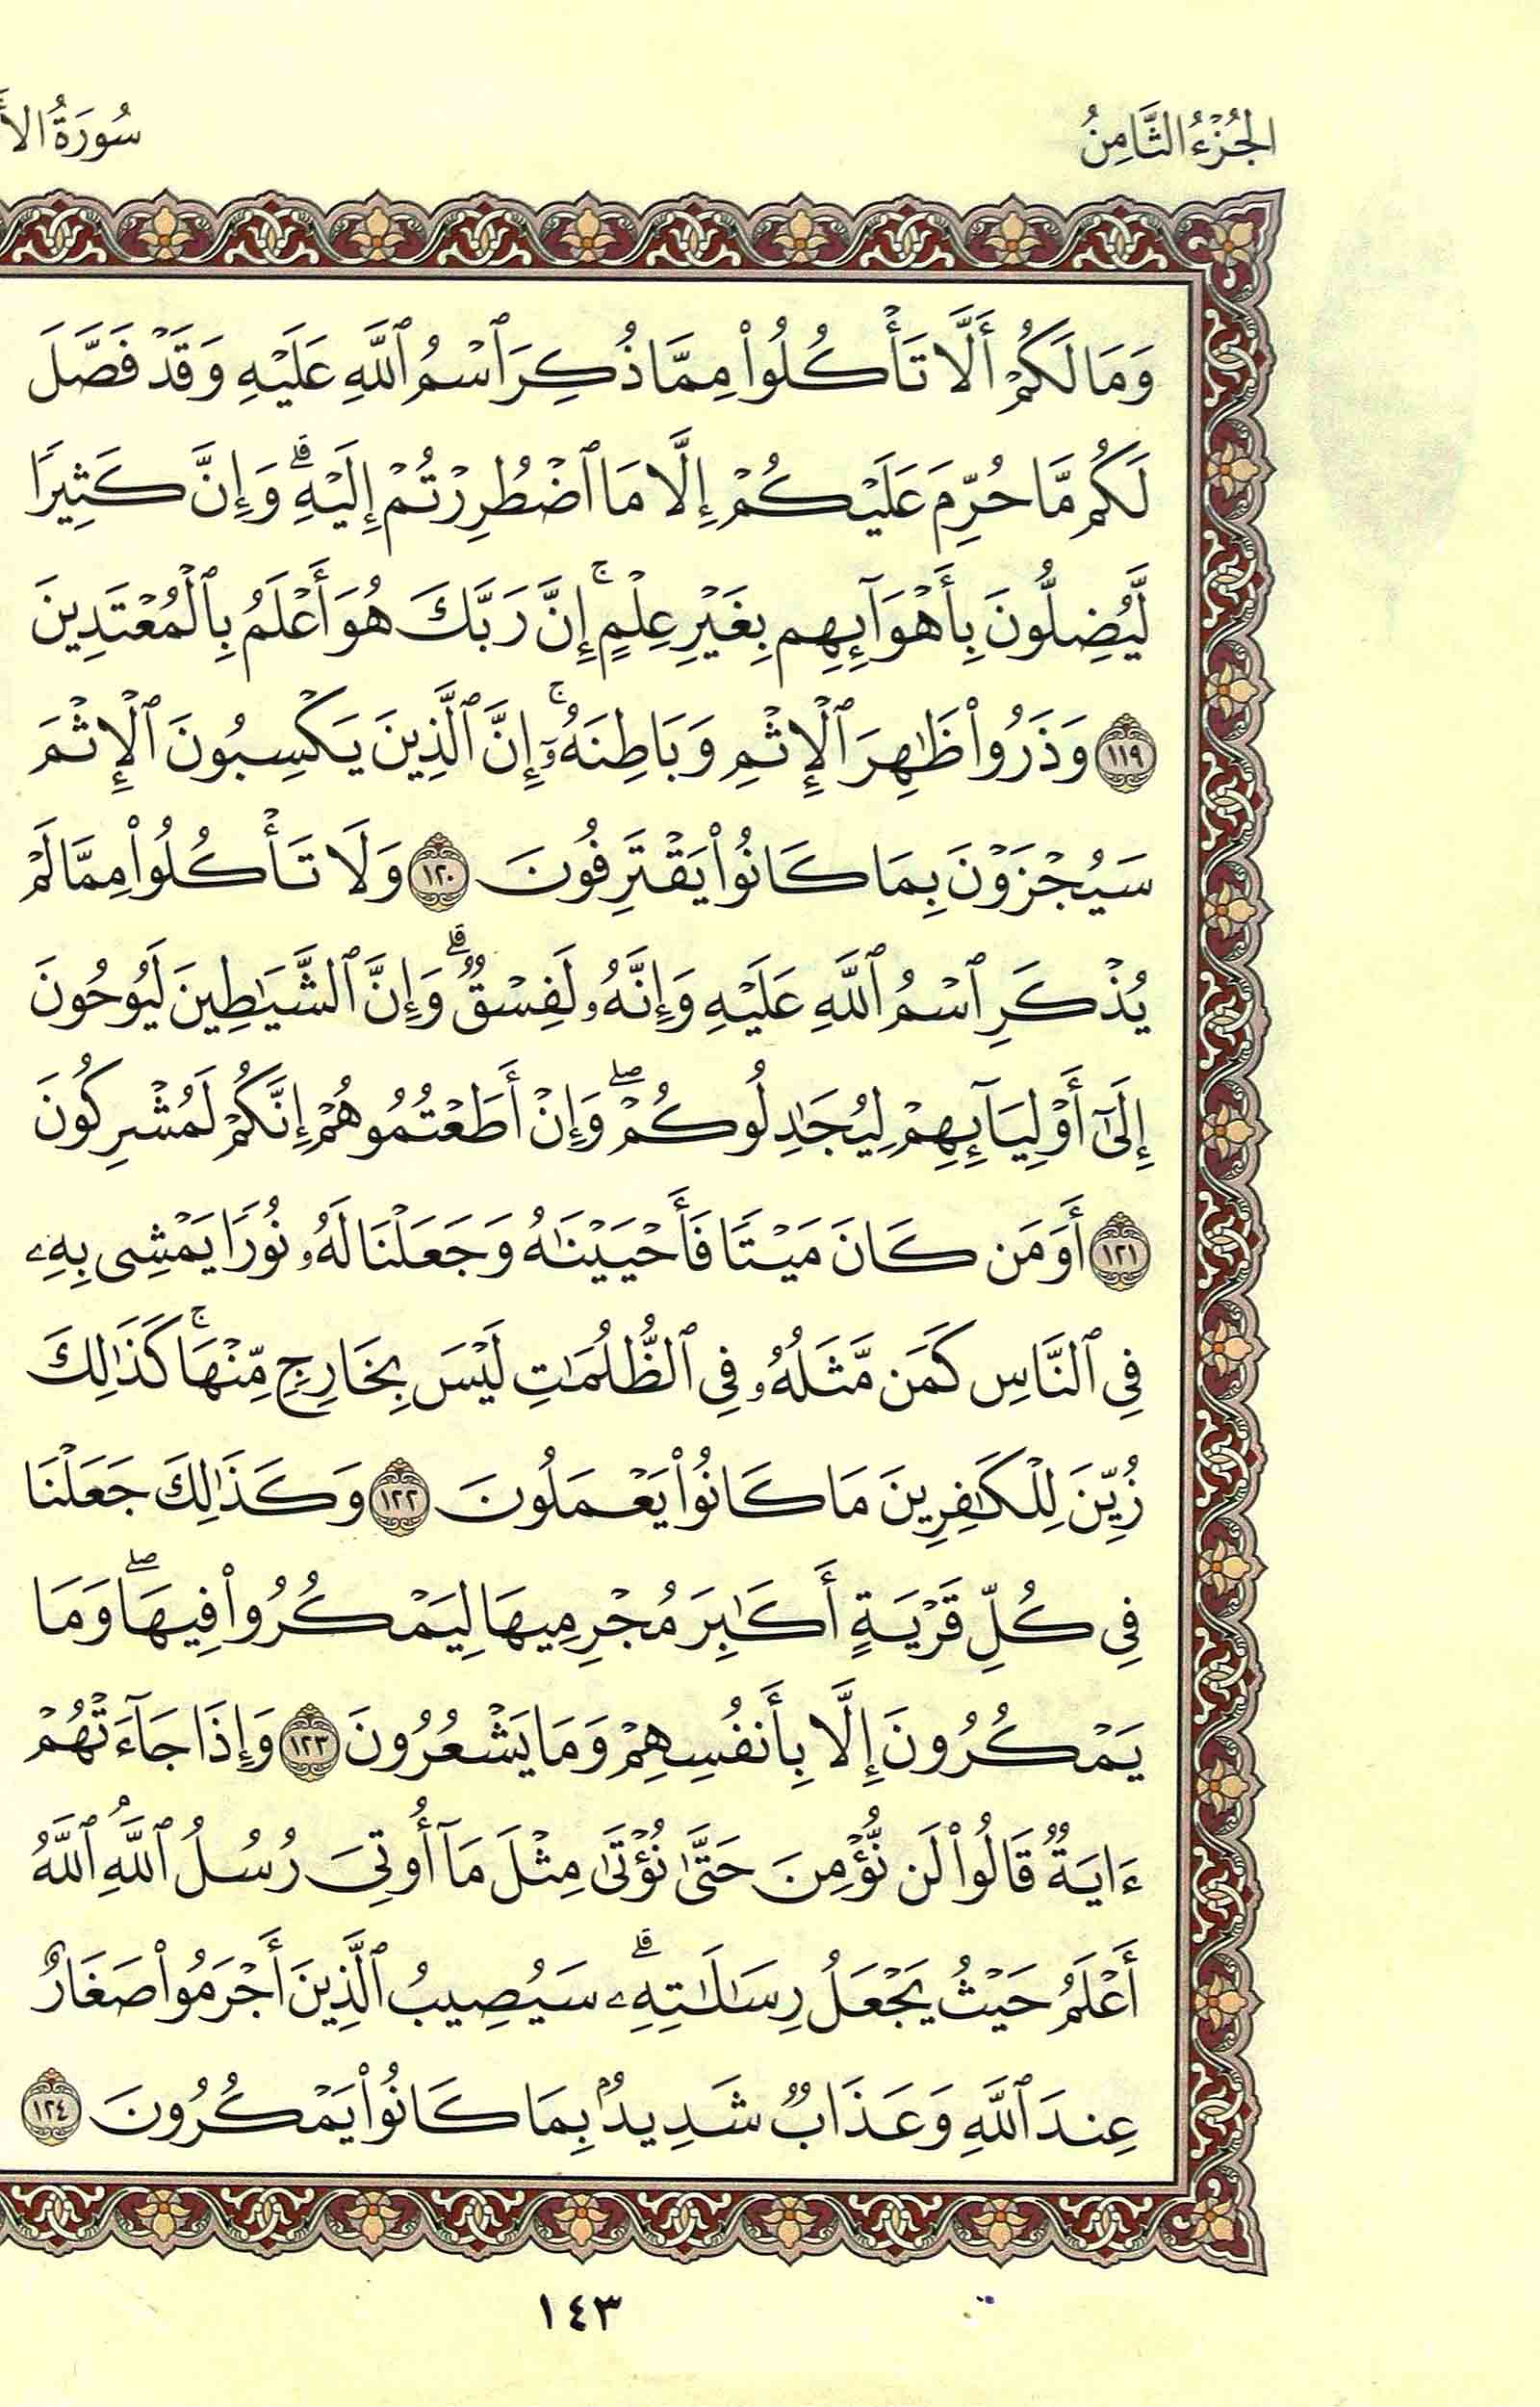 الجُزْءُ الثَّامِنُ
سُورَةُ
وَمَا لَكُمْ أَلَّا تَأْكُلُوا۟ مِمَّا ذُكِرَ ٱسْمُ ٱللَّهِ عَلَيْهِ وَقَدْ فَصَّلَ
لَكُم مَّا حُرِّمَ عَلَيْكُمْ إِلَّا مَا ٱضْطُرِرْتُمْ إِلَيْهِ ۗ وَإِنَّ كَثِيرًا
لَّيُضِلُّونَ بِأَهْوَآئِهِم بِغَيْرِ عِلْمٍ ۚ إِنَّ رَبَّكَ هُوَ أَعْلَمُ بِٱلْمُعْتَدِينَ
١١٩ وَذَرُوا۟ ظَٰهِرَ ٱلْإِثْمِ وَبَاطِنَهُۥٓ ۚ إِنَّ ٱلَّذِينَ يَكْسِبُونَ ٱلْإِثْمَ
سَيُجْزَوْنَ بِمَا كَانُوا۟ يَقْتَرِفُونَ ١٢٠ وَلَا تَأْكُلُوا۟ مِمَّا لَمْ
يُذْكَرِ ٱسْمُ ٱللَّهِ عَلَيْهِ وَإِنَّهُۥ لَفِسْقٌ ۗ وَإِنَّ ٱلشَّيَٰطِينَ لَيُوحُونَ
إِلَىٰٓ أَوْلِيَآئِهِمْ لِيُجَٰدِلُوكُمْ ۖ وَإِنْ أَطَعْتُمُوهُمْ إِنَّكُمْ لَمُشْرِكُونَ
١٢١ أَوَمَن كَانَ مَيْتًا فَأَحْيَيْنَٰهُ وَجَعَلْنَا لَهُۥ نُورًا يَمْشِى بِهِۦ
فِى ٱلنَّاسِ كَمَن مَّثَلُهُۥ فِى ٱلظُّلُمَٰتِ لَيْسَ بِخَارِجٍ مِّنْهَا ۚ كَذَٰلِكَ
زُيِّنَ لِلْكَٰفِرِينَ مَا كَانُوا۟ يَعْمَلُونَ ١٢٢ وَكَذَٰلِكَ جَعَلْنَا
فِى كُلِّ قَرْيَةٍ أَكَٰبِرَ مُجْرِمِيهَا لِيَمْكُرُوا۟ فِيهَا ۖ وَمَا
يَمْكُرُونَ إِلَّا بِأَنفُسِهِمْ وَمَا يَشْعُرُونَ ١٢٣ وَإِذَا جَآءَتْهُمْ
ءَايَةٌ قَالُوا۟ لَن نُّؤْمِنَ حَتَّىٰ نُؤْتَىٰ مِثْلَ مَآ أُوتِىَ رُسُلُ ٱللَّهِ ۘ ٱللَّهُ
أَعْلَمُ حَيْثُ يَجْعَلُ رِسَالَٰتِهِۦ ۗ سَيُصِيبُ ٱلَّذِينَ أَجْرَمُوا۟ صَغَارٌ
عِندَ ٱللَّهِ وَعَذَابٌ شَدِيدٌۢ بِمَا كَانُوا۟ يَمْكُرُونَ ١٢٤
١٤٣